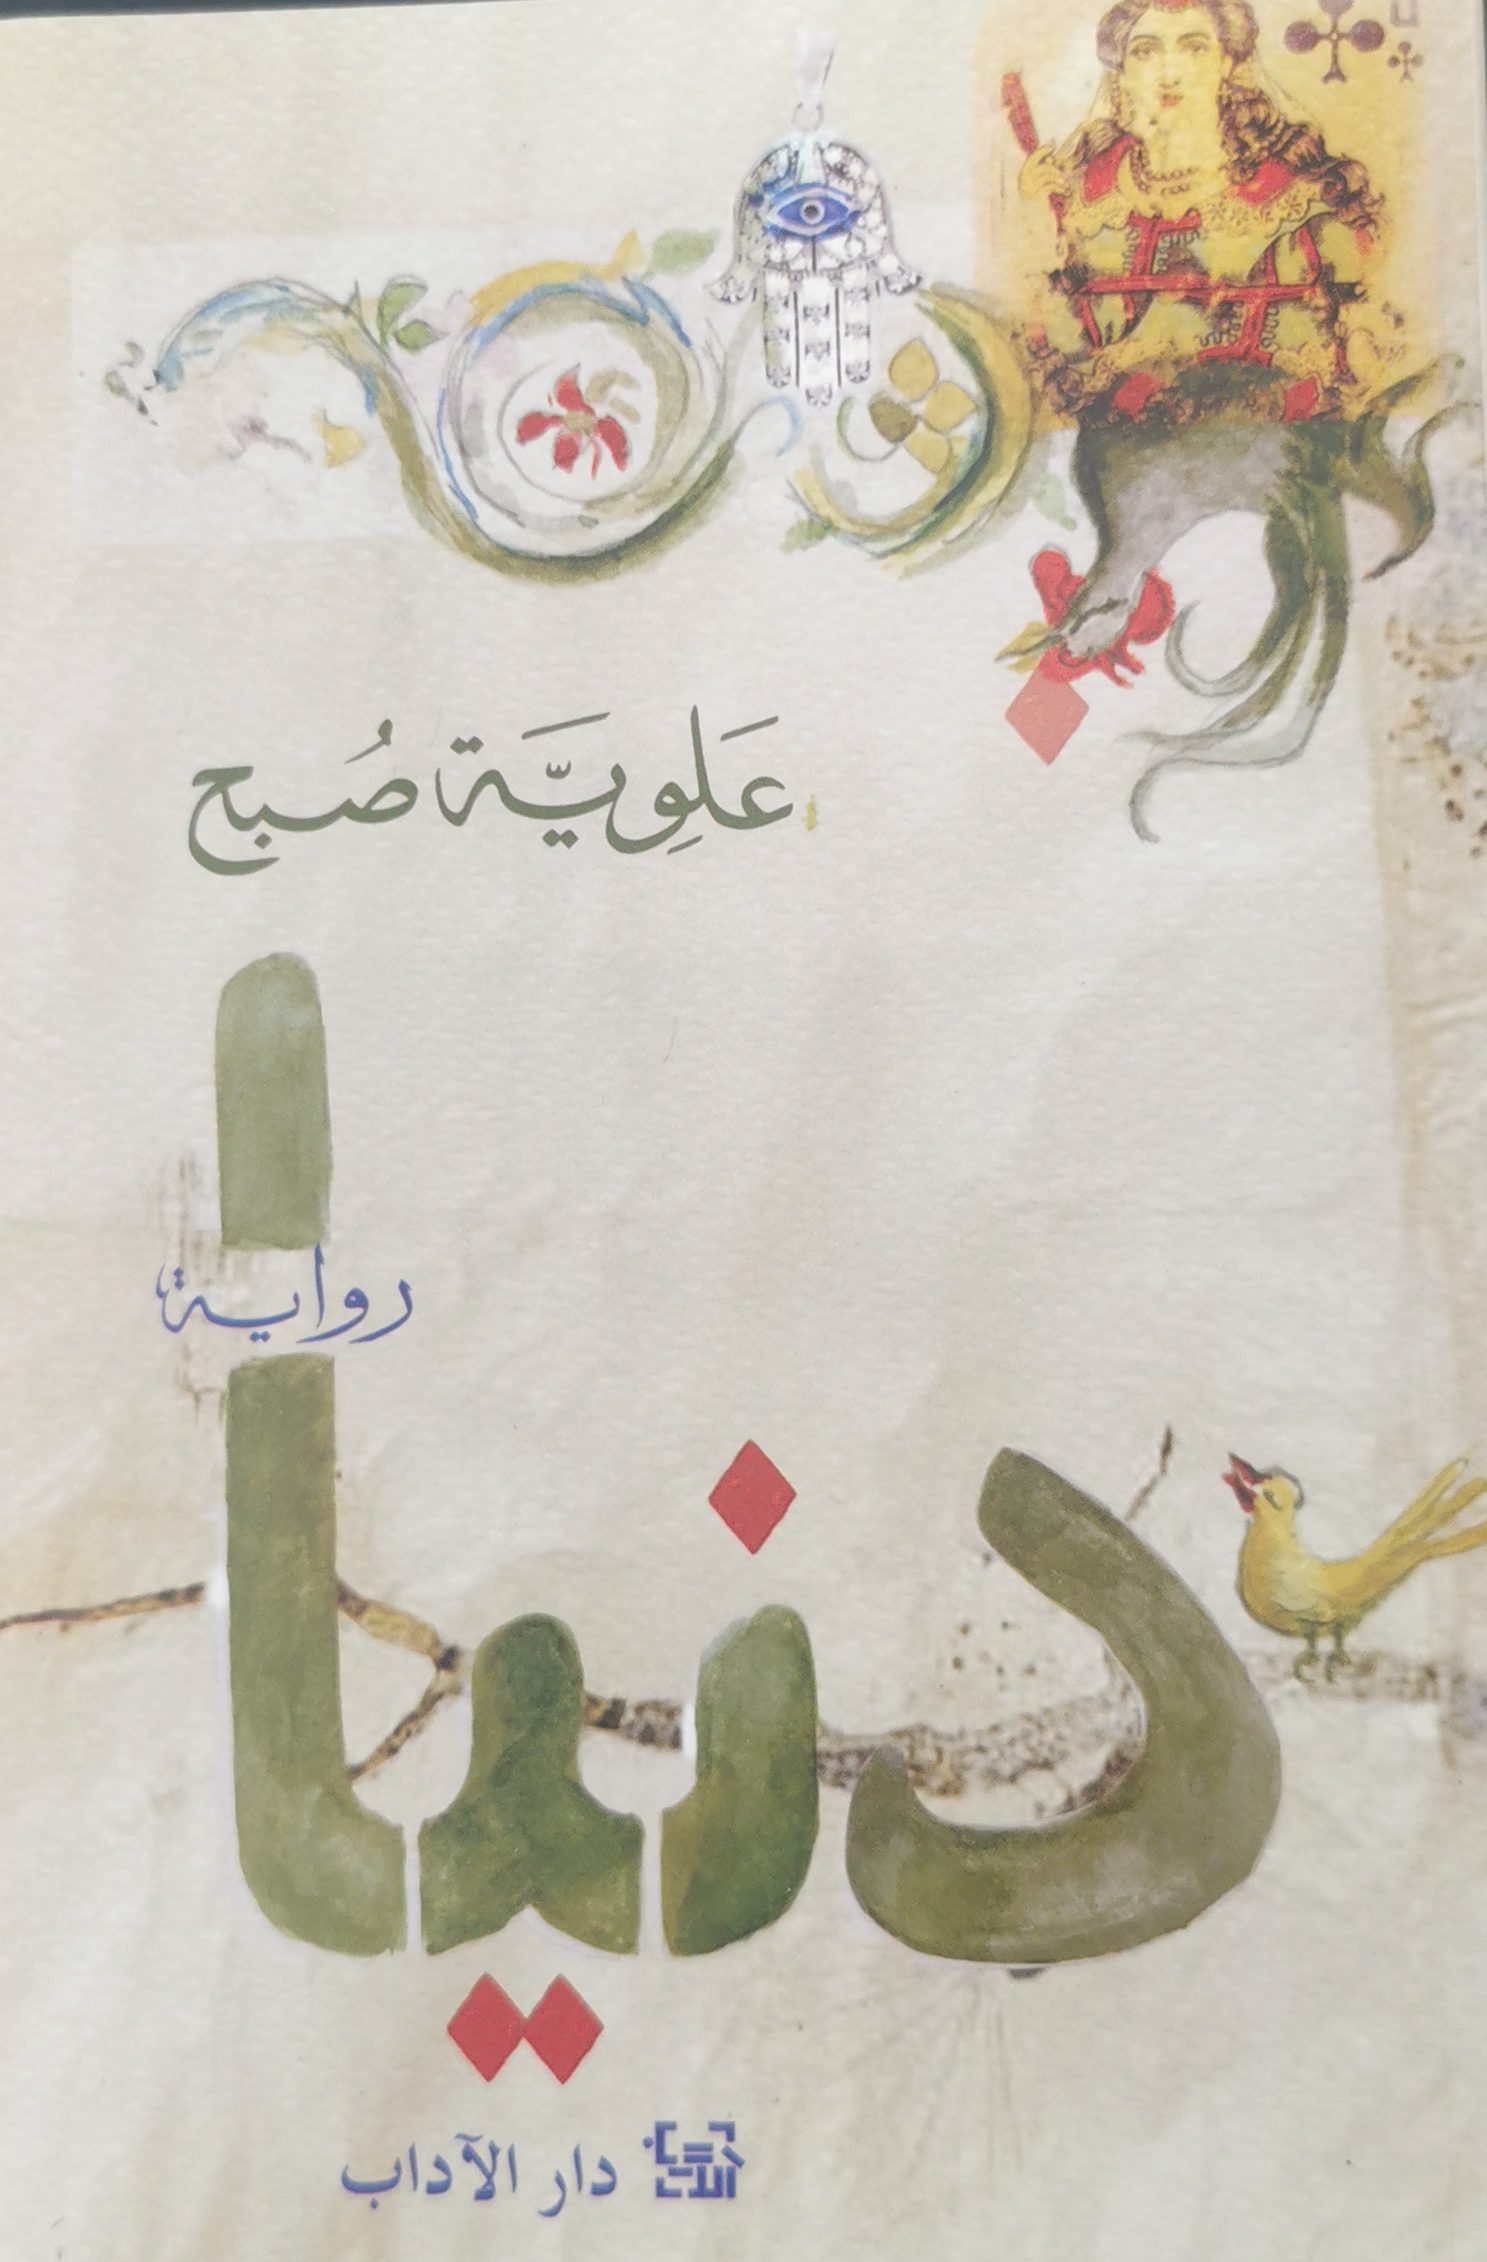 عَلَوِيَّة صُبح
رواية
دنيا
دار الآداب